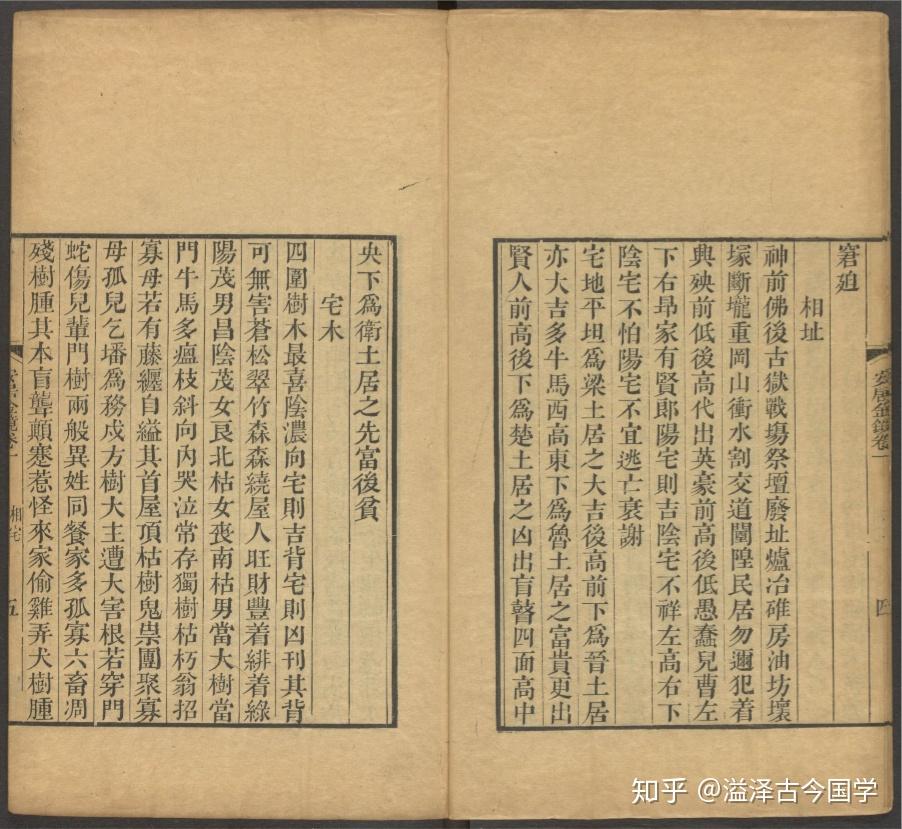 窘廹
相址
神前佛後古獄戰塲祭壇廢址爐冶碓房油坊壞
塚斷壠重岡山衝水割交道闉隍民居勿邇犯着
興殃前低後高代出英豪前高後低愚蠢兒曹左
下右昂家有賢郎陽宅則吉陰宅不祥左高右下
陰宅不怕陽宅不宜逃亡衰謝
宅地平坦爲梁土居之大吉後高前下爲晉土居
亦大吉多牛馬西高東下爲魯土居之富貴更出
賢人前高後下爲楚土居之凶出盲瞽四面高中
央下爲衛土居之先富後貧
宅木
四圍樹木最喜陰濃向宅則吉背宅則凶刊其背
可無害蒼松翠竹森森繞屋人旺財豐着緋着綠
陽茂男昌陰茂女良北枯女喪南枯男當大樹當
門牛馬多瘟枝斜向內哭泣常存獨樹枯朽翁招
寡母若有藤纒自縊其首屋頂枯樹鬼祟團聚寡
母孤兒乞墦爲務戍方樹大主遭大害根若穿門
蛇傷兒輩門樹兩般異姓同餐家多孤寡六畜凋
殘樹腫其本盲聾顛蹇惹怪來家偷雞弄犬樹腫
安居金鏡卷一
四
相宅
五
知乎 @溢泽古今国学